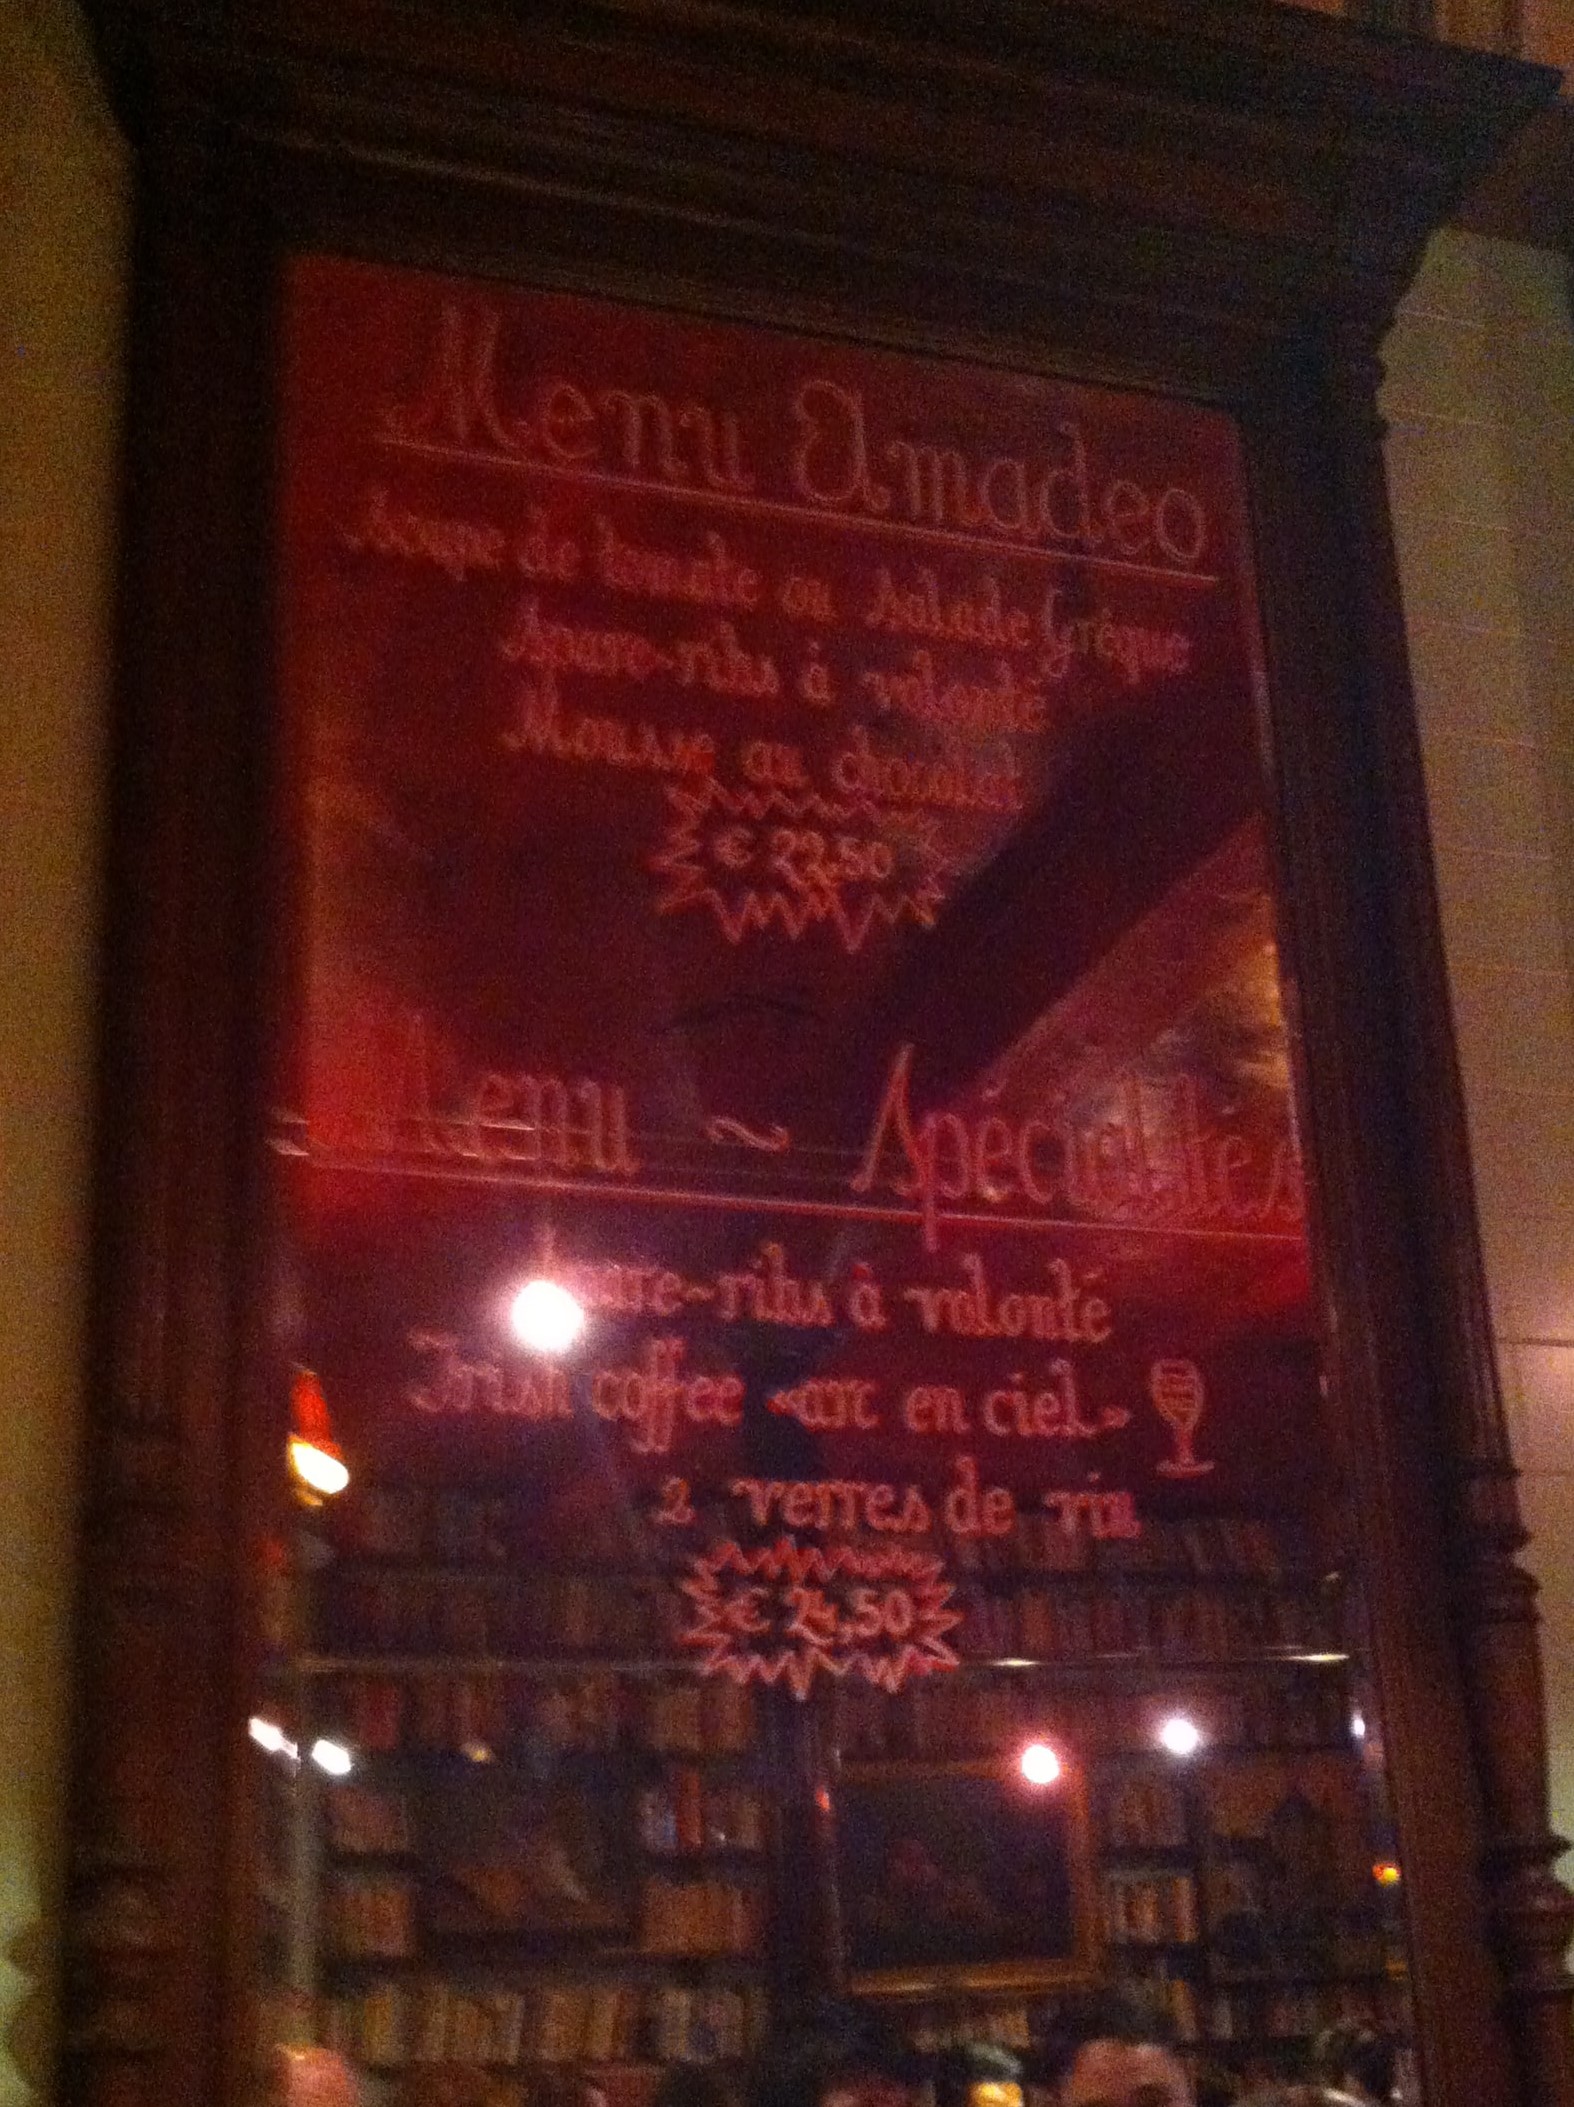 Menu Amadeo
Soupe de tomate ou salade Grèque
Spare-ribs à volonté
Mousse au chocolat
€ 22,50
Menu ~ Spécialités
Spare-ribs à volonté
Irish coffee «arc en ciel»
2 verres de vin
€ 24,50